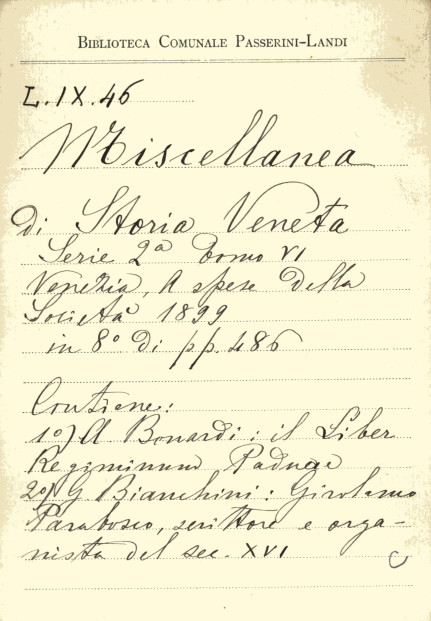 BIBLIOTECA COMUNALE PASSERINI-LANDI
L.IX.46
Miscellanea
di Storia Veneta
Serie 2a Tomo VI
Venezia, A spese della
Società 1899
in 8° di pp. 486
Contiene:
1°) A Bonardi: il Liber
Regiminum Paduae
2°) G Bianchini: Girolamo
Parabosco, scrittore e orga-
nista del sec. XVI